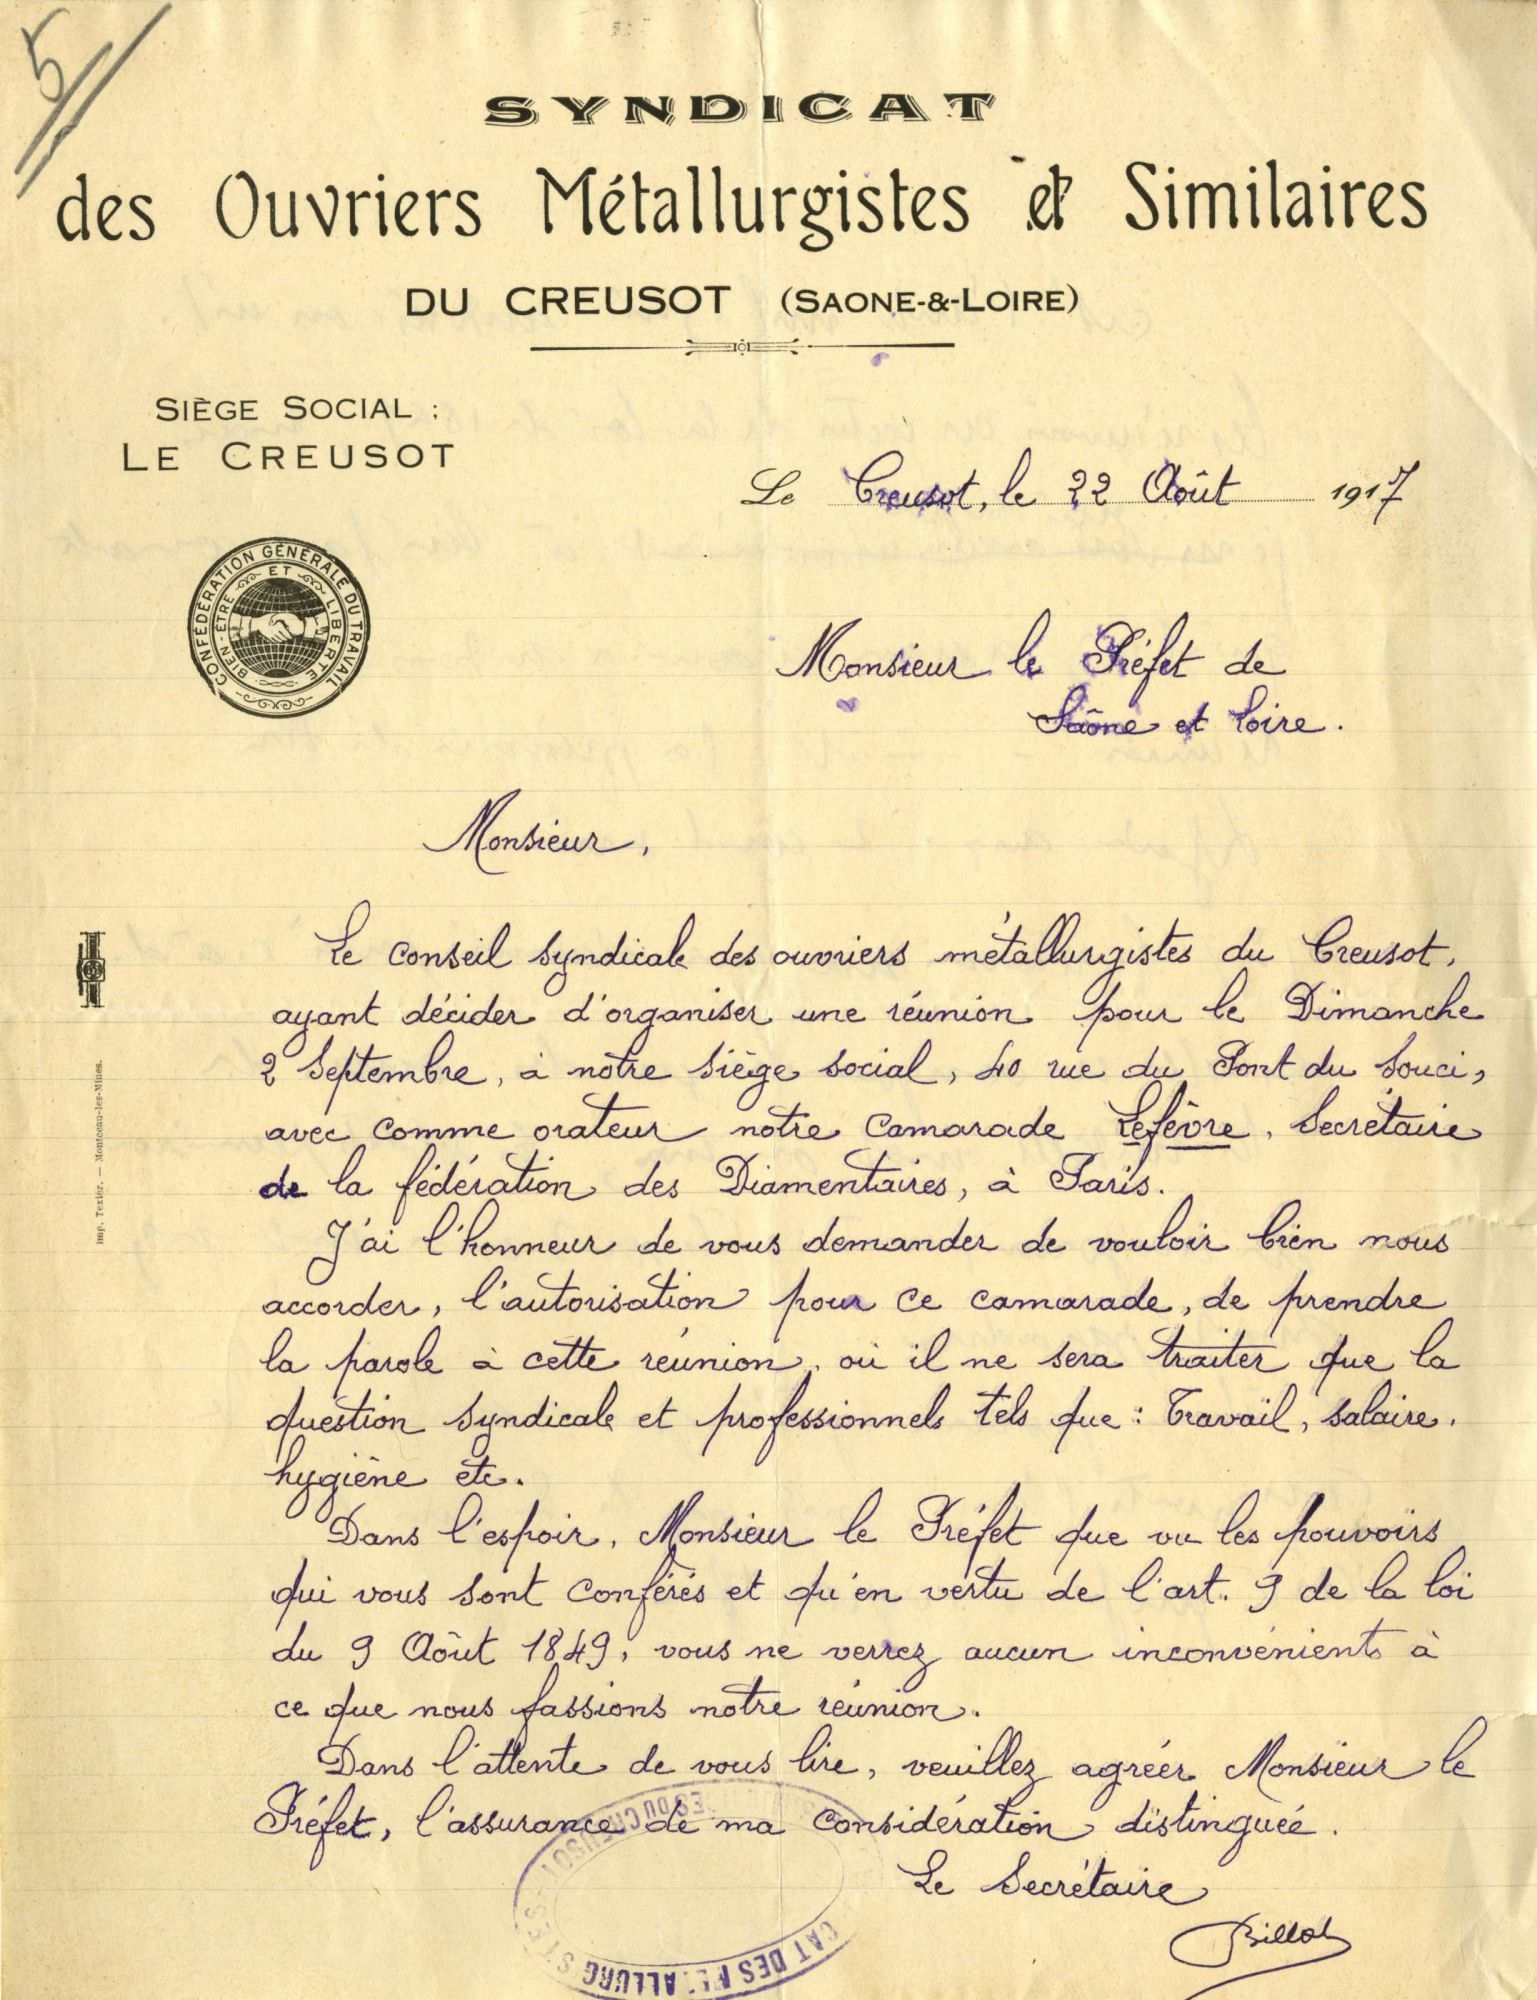 5
SYNDICAT
des Ouvriers Métallurgistes et Similaires
DU CREUSOT (SAONE-&-LOIRE)
SIÈGE SOCIAL :
LE CREUSOT
Le Creusot, le 22 Août 1917
CONFÉDÉRATION GÉNÉRALE DU TRAVAIL
BIEN-ÊTRE ET LIBERTÉ
Monsieur le Préfet de
Saône et Loire.
Monsieur,
Le Conseil Syndicale des ouvriers métallurgistes du Creusot,
ayant décider d'organiser une réunion pour le Dimanche
2 Septembre, à notre siège social, 40 rue du Pont du Souci,
avec comme orateur notre Camarade Lefèvre, Secrétaire
de la fédération des Diamentaires, à Paris.
J'ai l'honneur de vous demander de vouloir bien nous
accorder, l'autorisation pour ce camarade, de prendre
la parole à cette réunion, où il ne sera traiter que la
question syndicale et professionnels tels que : Travail, salaire,
hygiène etc.
Dans l'espoir, Monsieur le Préfet que vu les pouvoirs
qui vous sont conférés et qu'en vertu de l'art. 9 de la loi
du 9 Août 1849, vous ne verrez aucun inconvénients à
ce que nous fassions notre réunion.
Dans l'attente de vous lire, veuillez agréer Monsieur le
Préfet, l'assurance de ma considération distinguée.
Le Secrétaire
Billot
Imp. Texier. — Montceau-les-Mines.
CAT DES METALLURGISTES ES DU CREUSOT